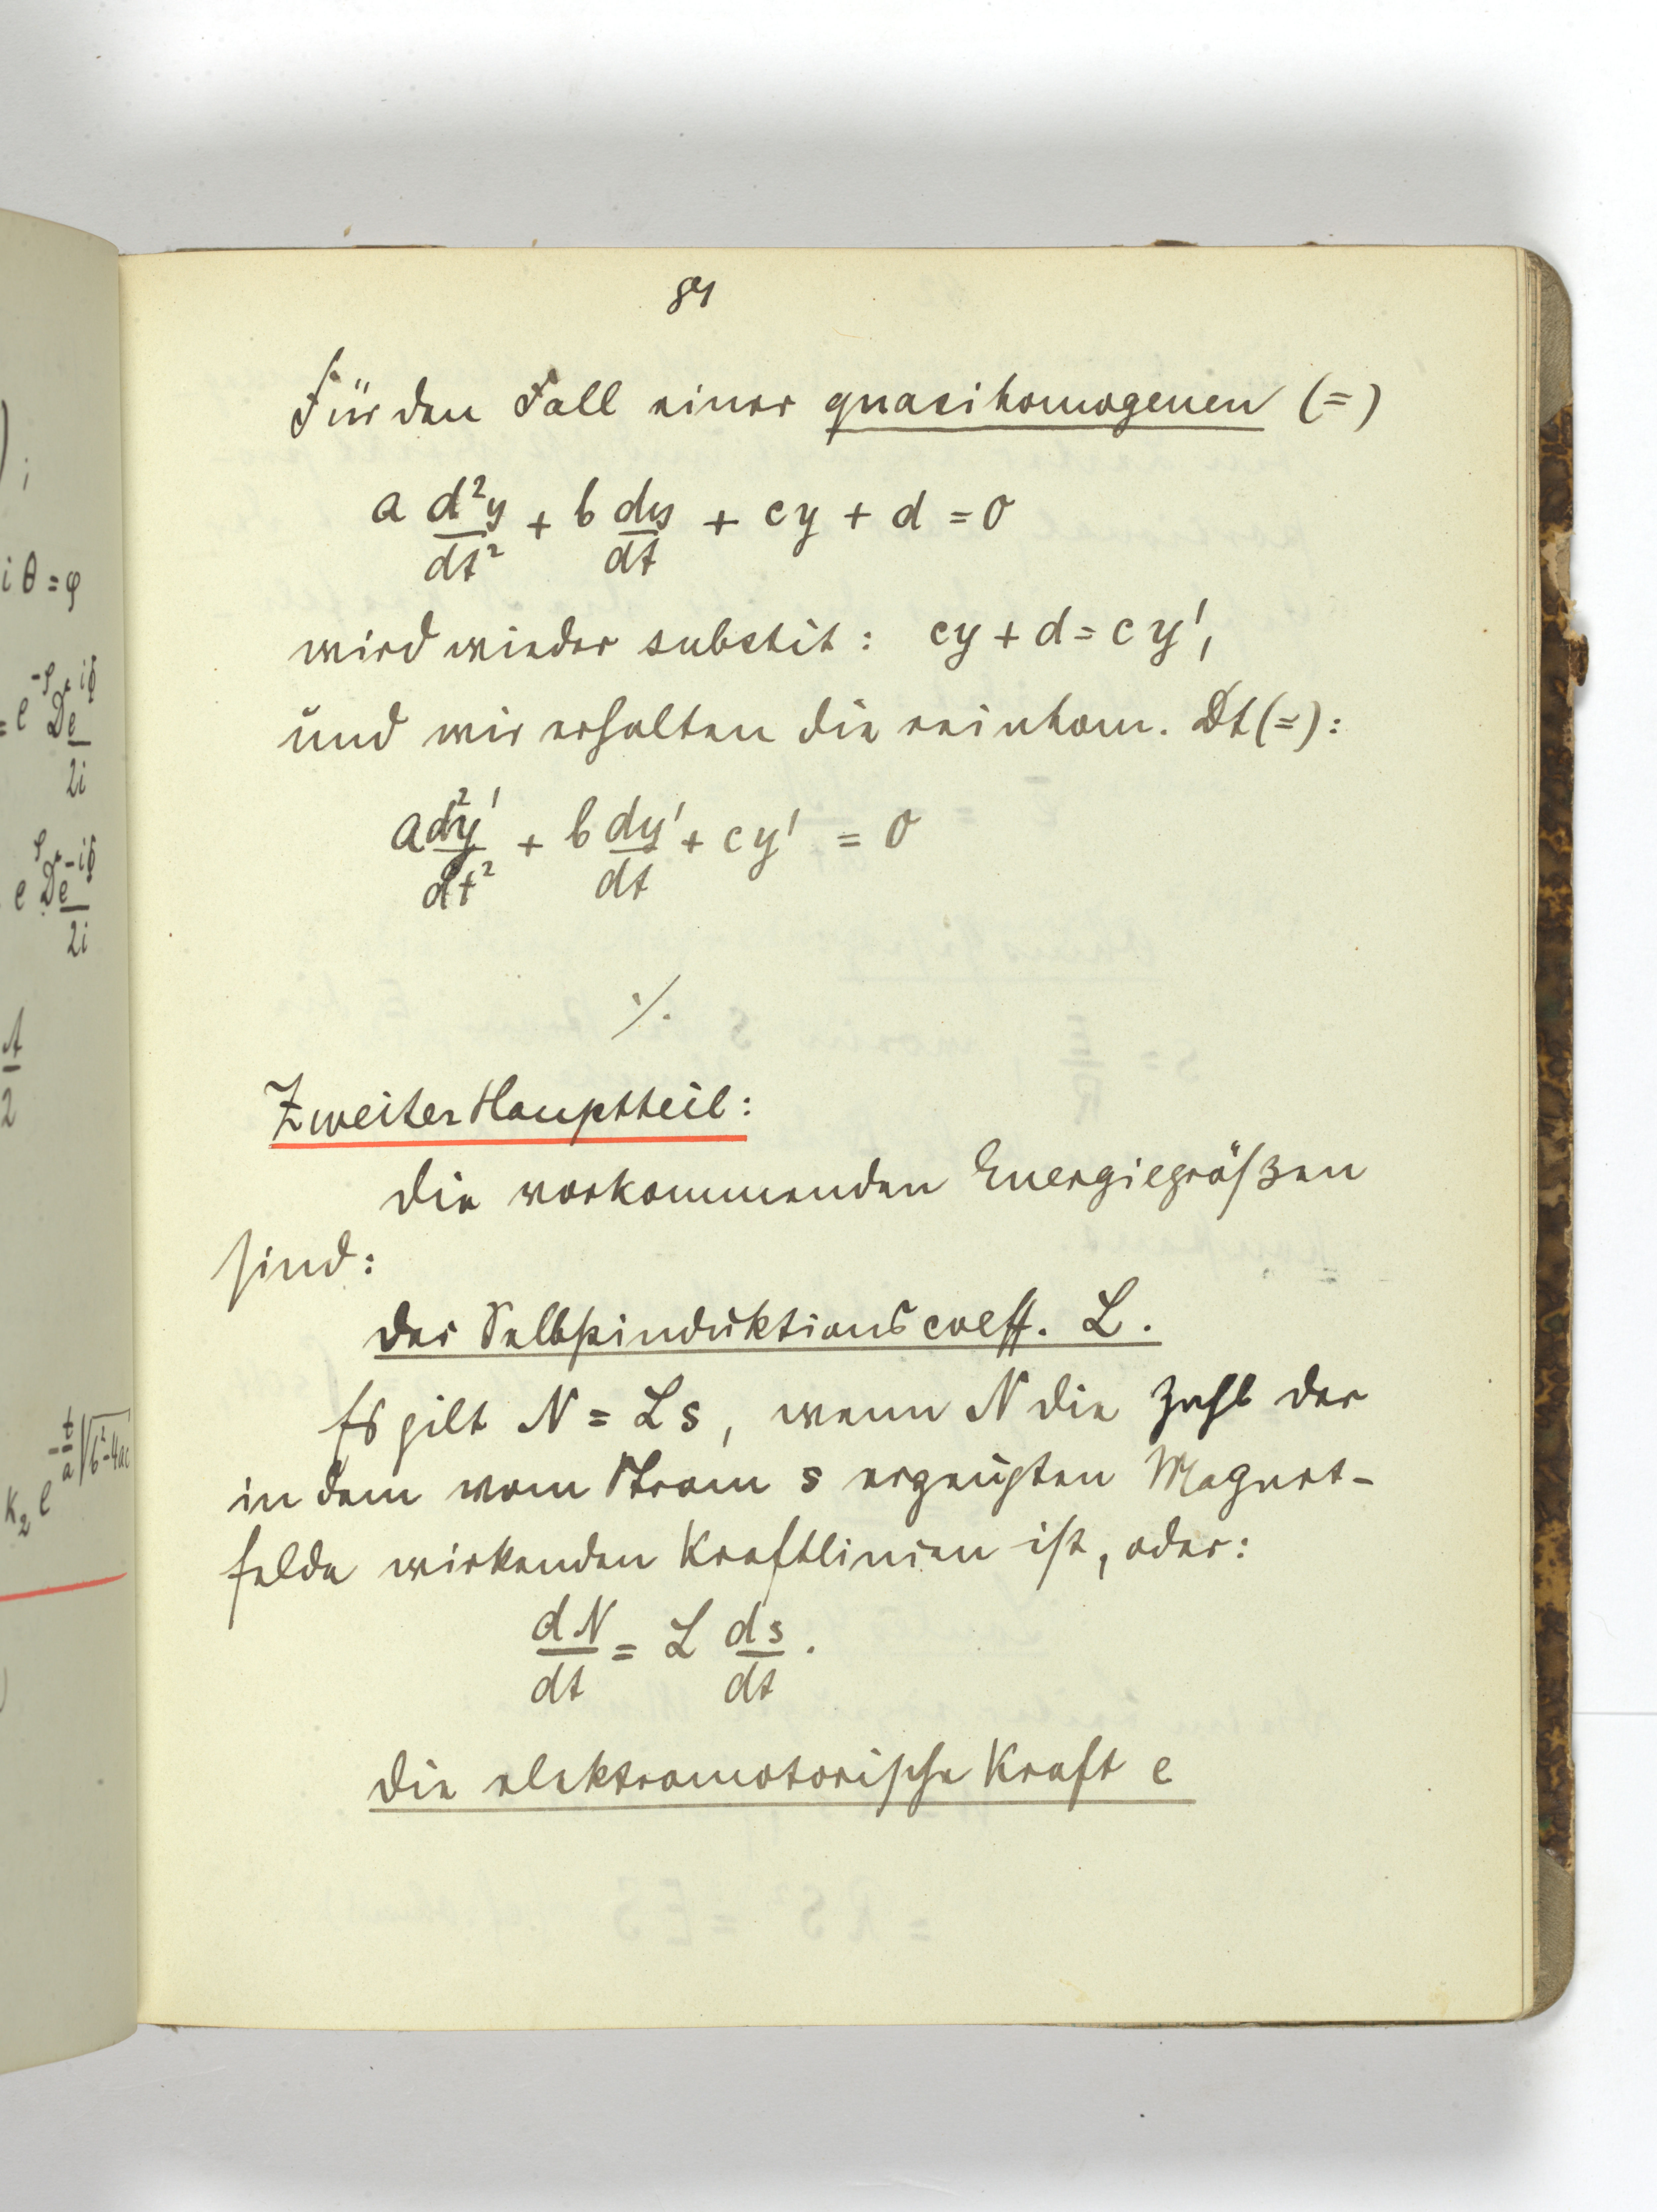 81
Für den Fall einer quasihomogenen (=)
a d²y/dt² + b dy/dt + cy + d = 0
wird wieder substit: cy + d = cy',
und wir erhalten die reinhom. Dt(=):
a d²y'/dt² + b dy'/dt + cy' = 0
·/.
Zweiter Hauptteil:
Die vorkommenden Energiegrößen
sind:
Der Selbstinduktionscoeff. L.
Es gilt N = Ls, wenn N die Zahl der
in dem vom Strom s erzeugten Magnet-
felde wirkenden Kraftlinien ist, oder:
dN/dt = L ds/dt.
Die elektromotorische Kraft e